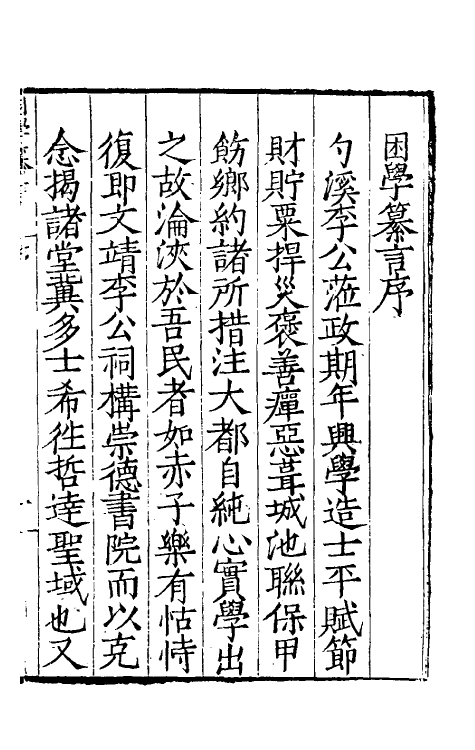 困學纂言序
勺溪李公蒞政期年興學造士平賦節
財貯粟捍災褒善癉惡葺城池聯保甲
飭鄉約諸所措注大都自純心實學出
之故淪浹於吾民者如赤子樂有怙恃
復即文靖李公祠構崇德書院而以克
念揭諸堂冀多士希往哲達聖域也又